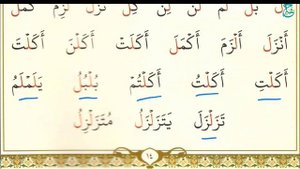 بَلْ لَمْ لَنْ لِنْ كِلْ نَزَلَ لَزِمَ كَمُلَ
أَنْزَلَ أَلْزَمَ أَكْمَلَ أَكَلَتْ أَكَلْنَ أَكَلْتَ
أَكَلْتِ أَكَلْتُ أَكَلْتُمْ بُلْبُلُ يَلَمْلَمُ
تَزَلْزَلَ يَتَزَلْزَلُ مُتَزَلْزِلُ
١٤